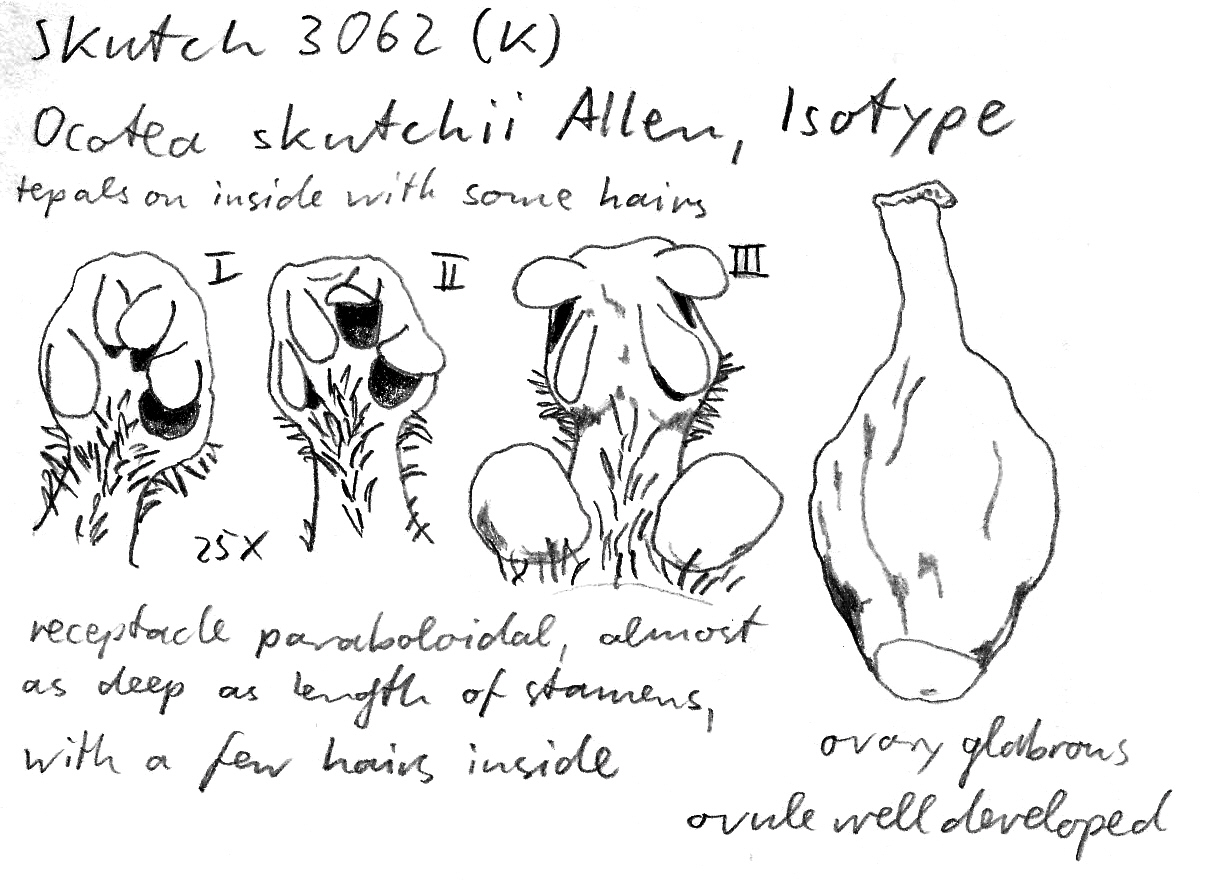 Skutch 3062 (K)
Ocotea skutchii Allen, Isotype
tepals on inside with some hairs
I
II
III
25X
receptacle paraboloidal, almost
as deep as length of stamens,
with a few hairs inside
ovary glabrous
ovule well developed